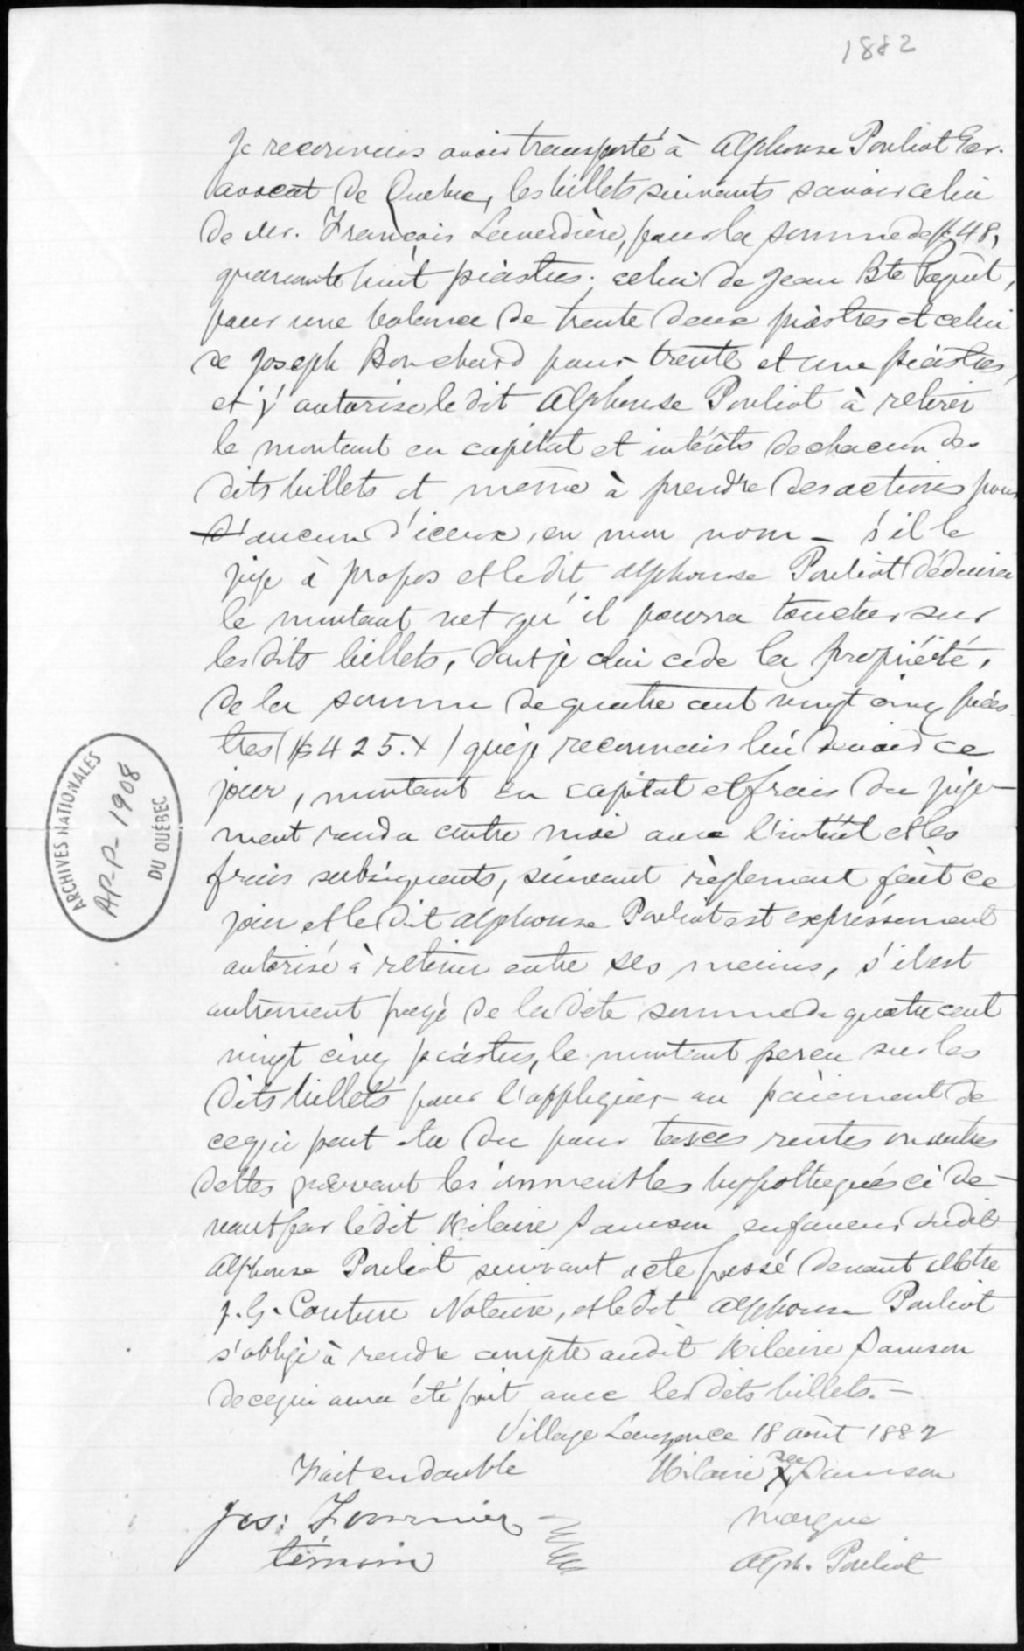 1882
Je reconnais avoir transporté à Alphonse Pouliot Ecr.
avocat de Quebec, les billets suivants savoir celui
de Mr. François Laverdière, pour la somme de $48,
quarante huit piastres; celui de Jean Bte Paquet,
pour une balance de trente deux piastres et celui
de Joseph Bouchard pour trente et une piastres,
et j'autorise le dit Alphonse Pouliot à retirer
le montant en capital et intérêts de chacun des
dits billets et même à prendre des actions pour
d'aucun d'iceux, en mon nom - s'il le
juge à propos et le dit Alphonse Pouliot déduira
le montant net qu'il pourra toucher sur
les dits billets, dont je lui cède la propriété,
de la somme de quatre cent vingt cinq pias
tres ($425.x) que je reconnais lui devoir ce
jour, montant en capital et frais du juge-
ment rendu contre moi avec l'intérêt et les
frais subséquents, suivant règlement fait ce
jour et le dit Alphonse Pouliot est expressément
autorisé à retenir entre ses mains, s'il est
autrement payé de la dite somme de quatre cent
vingt cinq piastres, le montant percu sur les
dits billets pour l'appliquer au paiement de
ce qui peut être du pour taxes rentes ou autres
dettes grevant les immeubles hypothequés ci de-
vant par le dit Hilaire Samson en faveur du dit
Alphonse Pouliot suivant acte passé devant Mtre
J. G. Couture Notaire, et le dit Alphonse Pouliot
s'oblige à rendre compte au dit Hilaire Samson
de ce qui aura été fait avec les dits billets. -
Village Lauzon ce 18 août 1882
Fait en double
Hilaire sa X Samson
marque
Jos: Fournier
témoin
Alph. Pouliot
ARCHIVES NATIONALES
AP-P-1908
DU QUÉBEC